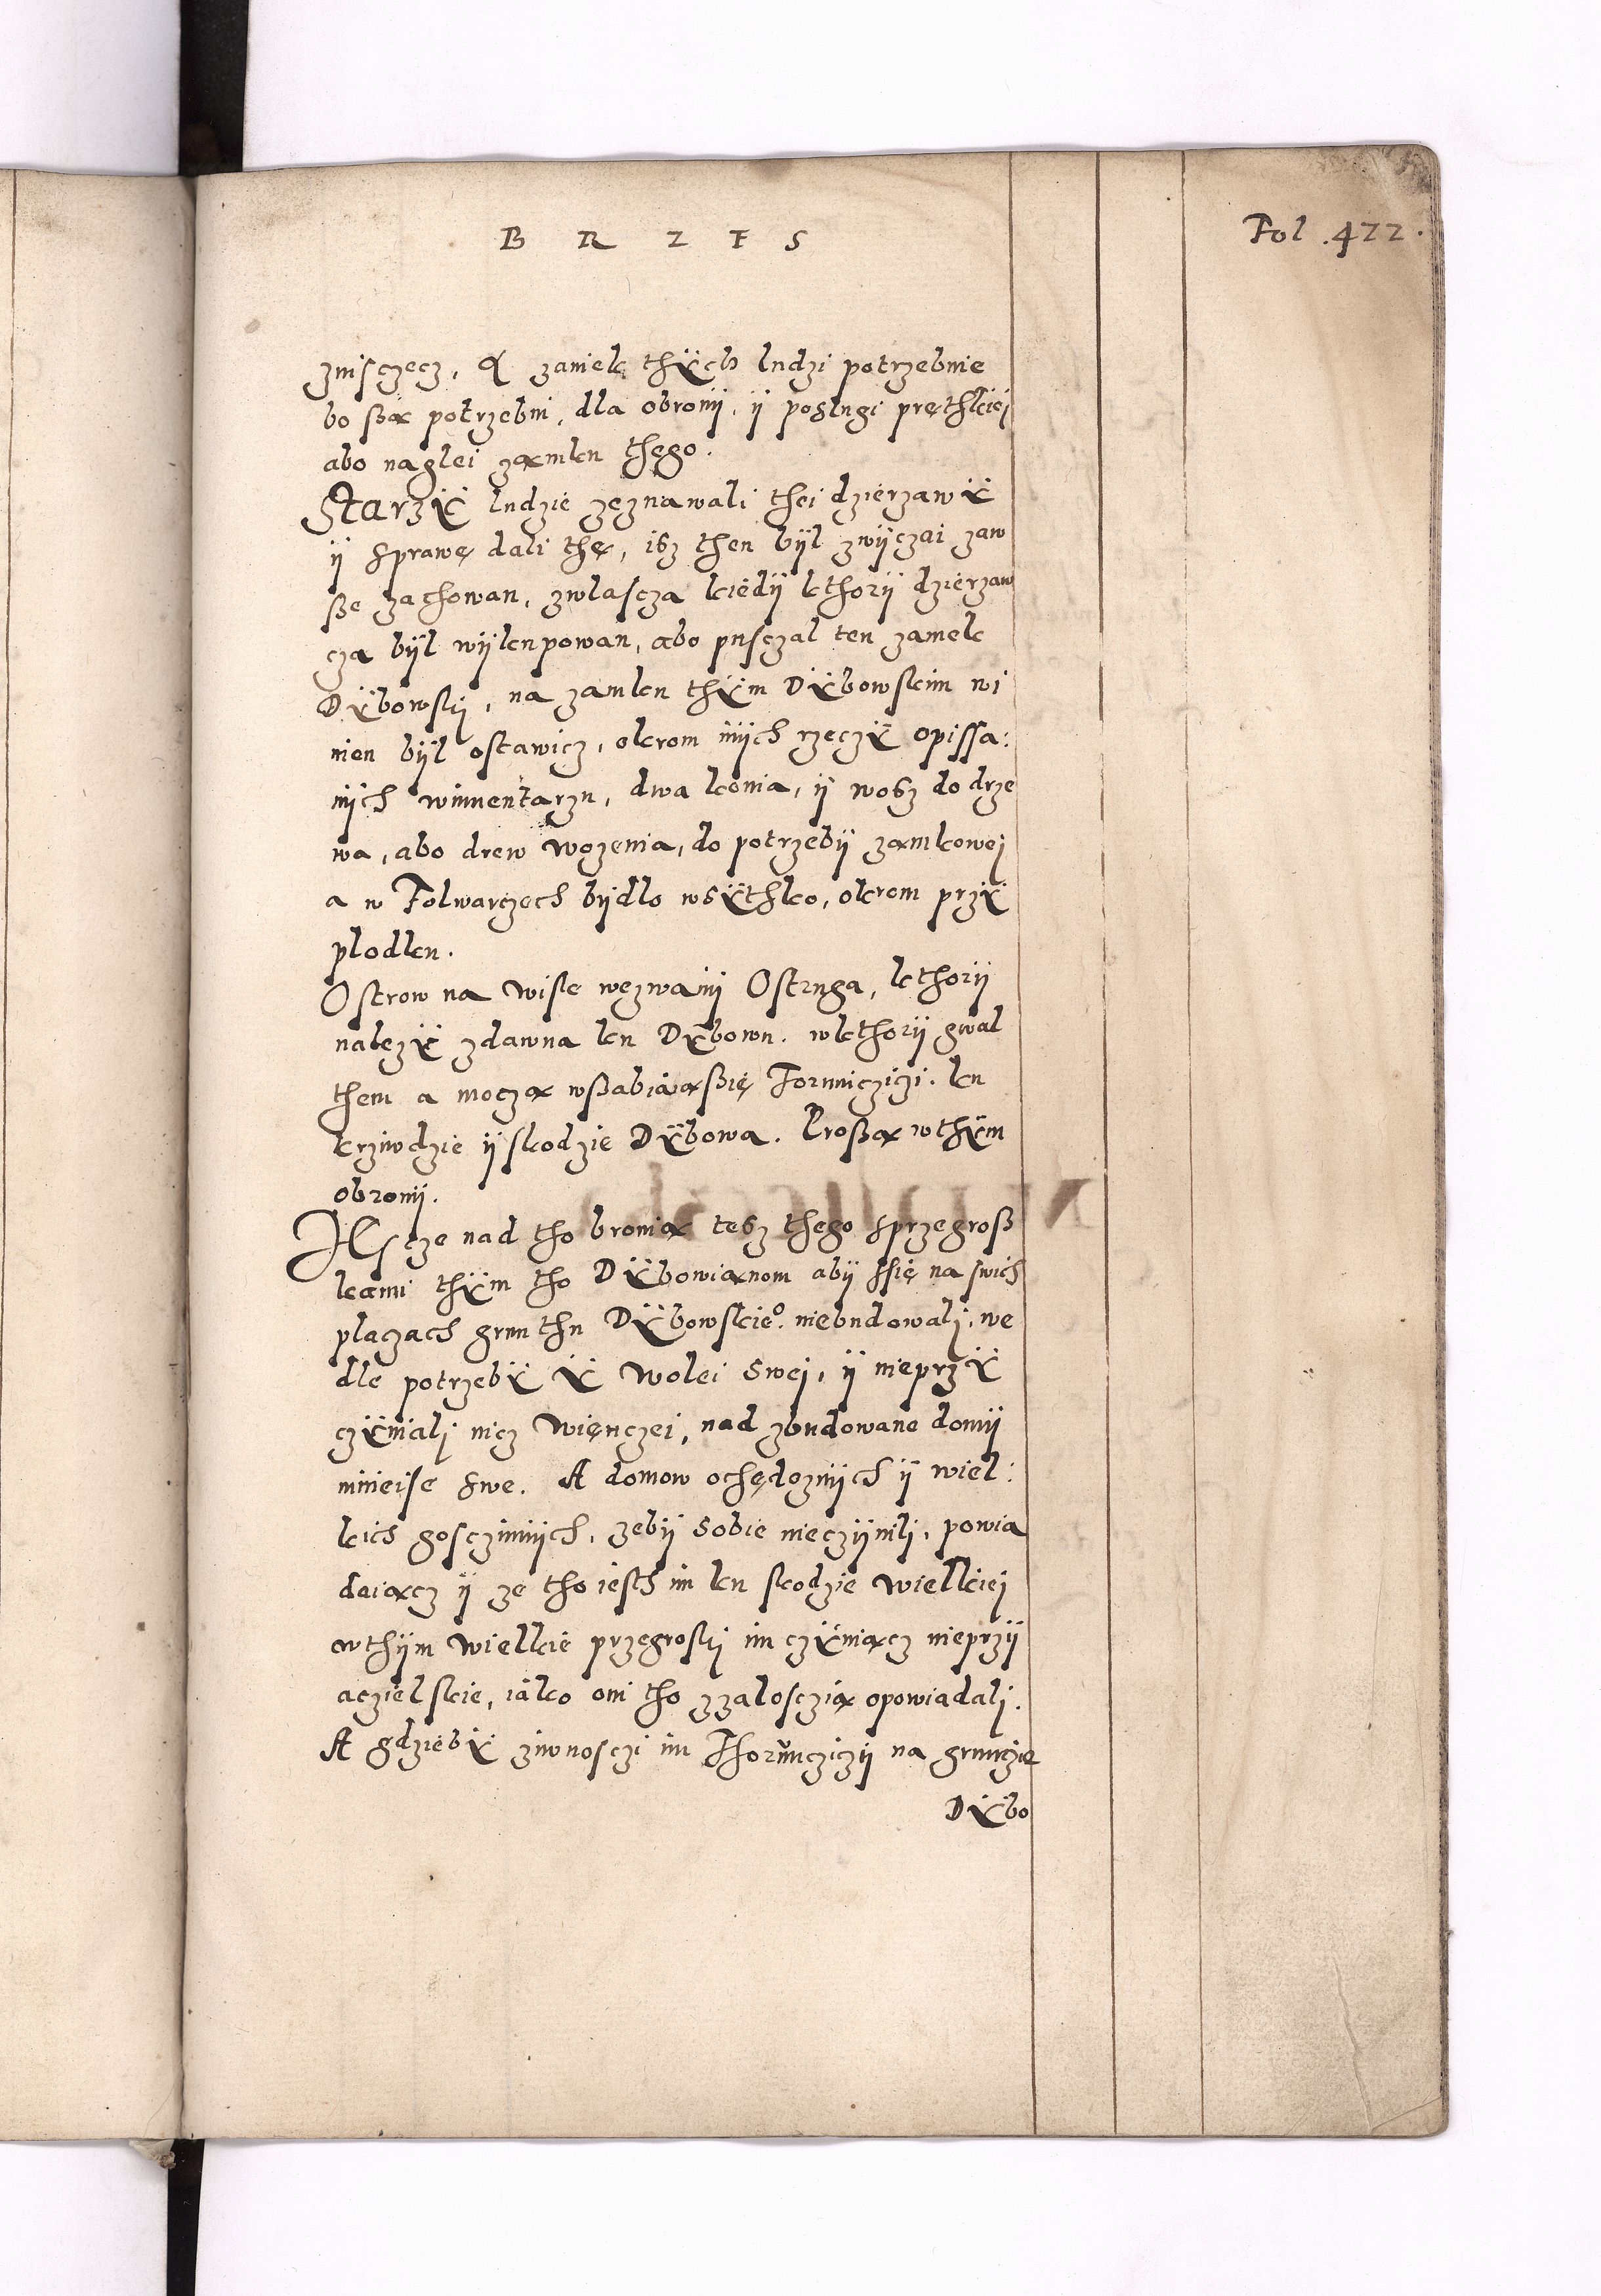 B R Z E S
Fol. 422.
znisczecz, A zamek thÿch ludzi potrzebuie
bo ßą potrzebni, dla obronÿ, ÿ poslugi pręthkiej
abo naglei zamku thego.
Starzÿ ludzie zeznawali thei dzierzawÿ
ÿ sprawę dali thę, isz then bÿl zwÿczai zaw
ße zachowan, zwlascza kiedÿ kthorÿ dzierzaw
cza bÿl wÿkupowan, abo pusczal ten zamek
Dÿbowskj, na zamku thÿm Dÿbowskim wi
nien bÿl ostawicz, okrom inÿch rzeczÿ opissa:
nÿch winuentarzu, dwa konia, ÿ wosz do drze
wa, abo drew wozenia, do potrzebÿ zamkowej
a w Folwarczech bÿdlo wsÿthko, okrom przÿ
plodku.
Ostrow na Wisle wezwanÿ Ostruga, kthorÿ
nalezÿ zdawna ku Dÿbowu. wkthorÿ gwal
them a moczą wßabiaią ßię Toruniczizi. ku
krziwdzie ÿ skodzie Dÿbowa. Proßą wthÿm
obronÿ.
JEscze nad tho bronią tesz thego sprzegroß
kami thÿm tho Dÿbowianom abÿ ssię na swich
placzach grunthu Dÿbowskie°. niebudowalj, we
dle potrzebÿ ÿ wolei swej, ÿ nieprzÿ
czÿnialj nicz więnczei, nad zbudowane domÿ
mnieise swe. A domow ochędoznÿch ÿ wiel:
kich gosczinnÿch, zebÿ sobie nieczÿnilj, powia
daiącz ÿ ze tho iesth im ku skodzie wielkiej
owthÿm wielkie przegroskj im czÿniącz nieprzÿ
aczielskie, iako oni tho zzalosczią opowiadalj.
A gdziebÿ ziwnosczi im Thorunczizÿ na grunczie
Dÿbo